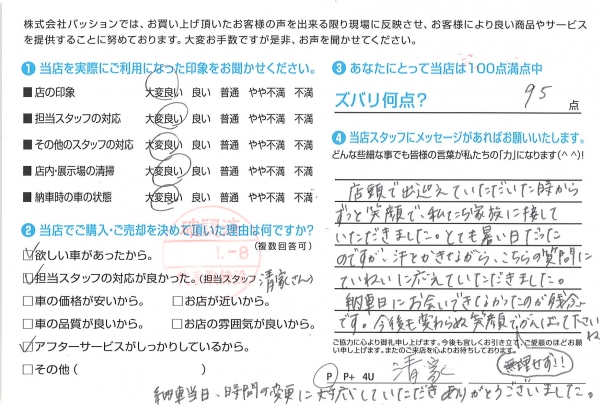 株式会社パッションでは、お買い上げ頂いたお客様の声を出来る限り現場に反映させ、お客様により良い商品やサービス
を提供することに努めております。大変お手数ですが是非、お声を聞かせてください。
① 当店を実際にご利用になった印象をお聞かせください。
■ 店の印象 大変良い 良い 普通 やや不満 不満
■ 担当スタッフの対応 大変良い 良い 普通 やや不満 不満
■ その他のスタッフの対応 大変良い 良い 普通 やや不満 不満
■ 店内・展示場の清掃 大変良い 良い 普通 やや不満 不満
■ 納車時の車の状態 大変良い 良い 普通 やや不満 不満
② 当店でご購入・ご売却を決めて頂いた理由は何ですか?
(複数回答可)
1.-8
☑欲しい車があったから。
☑担当スタッフの対応が良かった。(担当スタッフ 清家さん)
□車の価格が安いから。 □お店が近いから。
□車の品質が良いから。 □お店の雰囲気が良いから。
☑アフターサービスがしっかりしているから。
□その他( )
③ あなたにとって当店は100点満点中
ズバリ何点? 95 点
④ 当店スタッフにメッセージがあればお願いいたします。
どんな些細な事でも皆様の言葉が私たちの「力」になります(^^)!
店頭で出迎えていただいた時から
ずっと笑顔で、私たち家族に接して
いただきました。とても暑い日だった
のですが、汗をかきながら、こちらの質問に
ていねいに応えていただきました。
納車日にお会いできなかったのが残念
です。今後も変わらぬ笑顔でがんばって下さいね
無理せず!!
ご協力に心より御礼申し上げます。今後も宜しくお引き立て、ご愛顧のほどお願い申し上げます。またのご来店を心よりお待ちしております。
P P+ 4U 清家
納車当日、時間の変更に対応していただきありがとうございました。